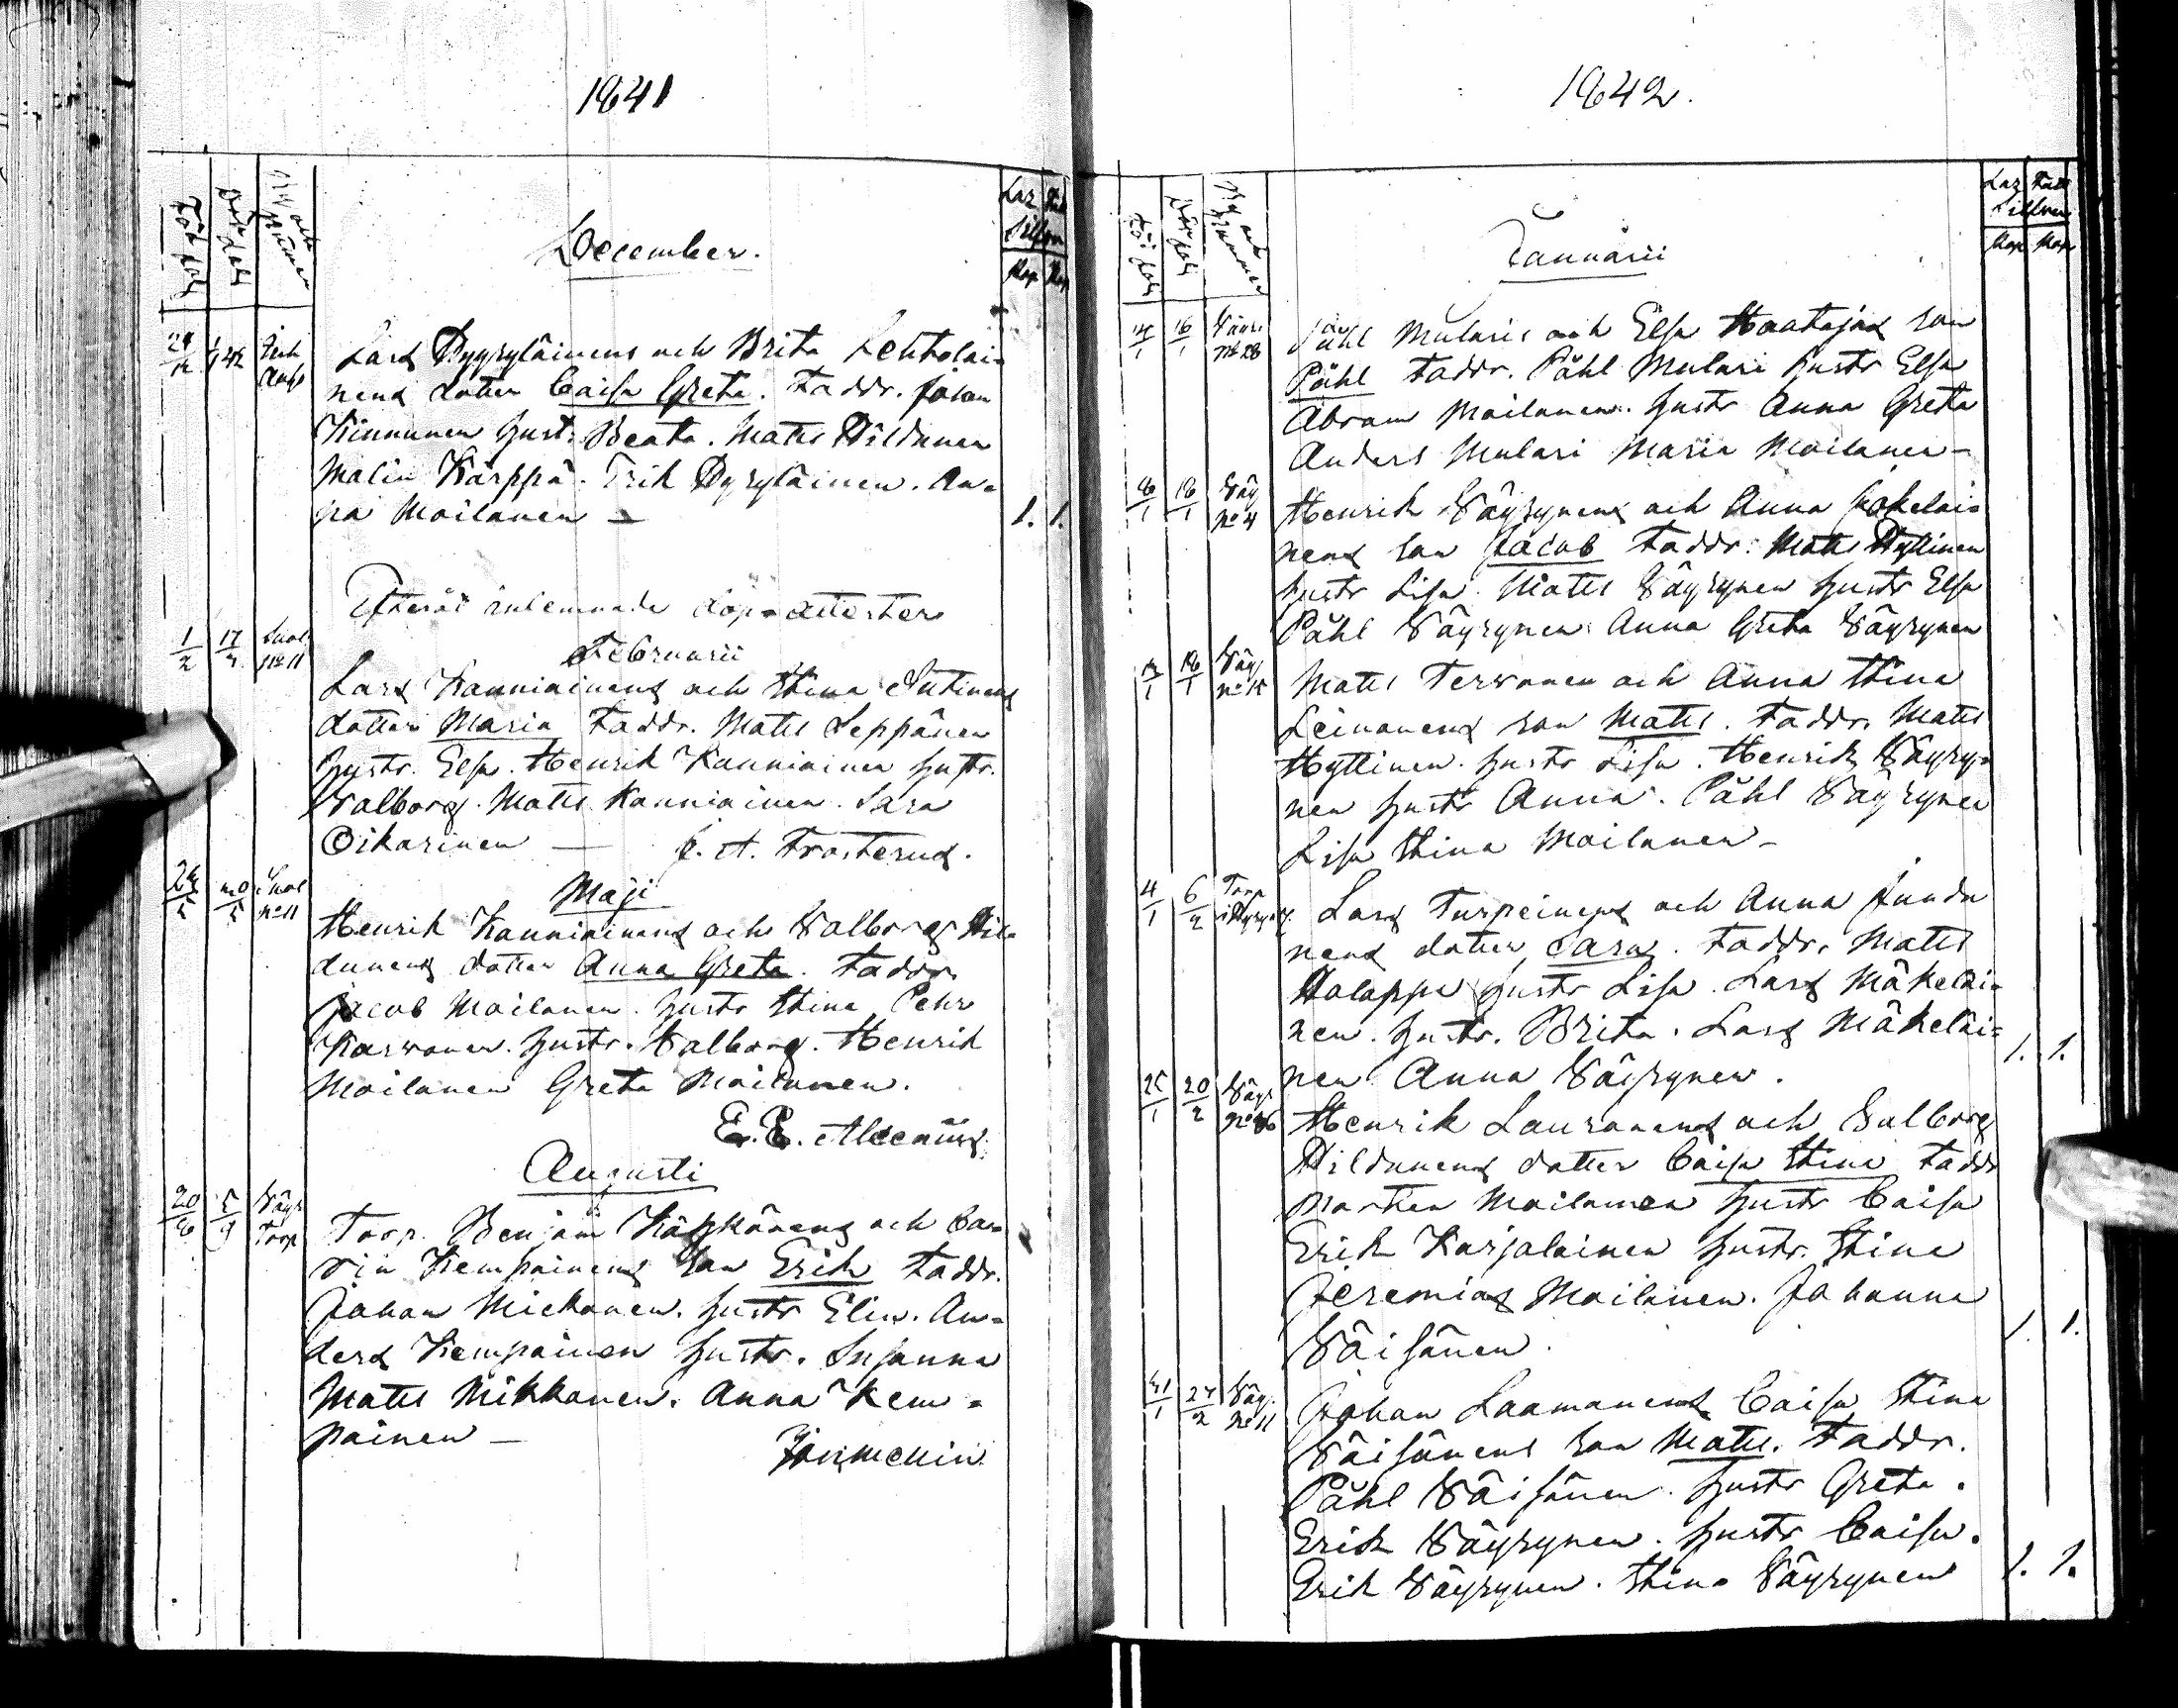 1841
December.
Lars Pyyryläinens och Brita Lehtolai=
nens dotter Caisa Greta. Faddr. Johan
Kinnunen hust. Beata. Matts Hildunen
Malin Karppa. Erik Pyyryläinen. An=
na Moilanen —
1. 1.
Efteråt inlemnade döp=attester
Februarii
1/2 17/2 Suol No 11
Lars Kanniainens och Stina Intinens
dotter Maria Faddr. Matts Seppänen
hustr. Elsa. Henrik Kanniainen hustr.
Valborg. Matts Kanniainen. Sara
Oikarinen — J. A. Frosterus.
Maji
Suol No 11
Henrik Kanniainens och Valborg Hil=
dunens dotter Anna Greta. Faddr.
Jacob Moilanen. hustr Stina Pehr
Karvonen. hustr. Valborg. Henrik
Moilanen Greta Moilanen.
E. E. Alcenius.
Augusti
20/8 5/9 Väyr Torp
Torp. Benjam Käpkänens och Ca=
rin Kempainens son Erik Faddr.
Johan Mickonen. hustr Elin. An=
ders Kempainen hustr. Susanna
Matts Mikkonen. Anna Kem=
painen —
1842.
Januarii
16/1 Väyr No 28
Påhl Mularis och Elsa Haatajas son
Påhl Faddr. Påhl Mulari hustr Elsa
Abram Moilanen. hustr Anna Greta
Anders Mulari Maria Moilanen —
18/1 Väy No 4
Henrik Väyrynens och Anna Jokelai=
nens son Jacob Faddr: Matts Hyttinen
hustr Lisa. Matts Väyrynen hustr Elsa
Påhl Väyrynen Anna Greta Väyrynen
18/1 Väy No 15
Matts Tervonen och Anna Stina
Leinonens son Matts. Faddr. Matts
Hyttinen. hustr Lisa. Henrik Väyry=
nen hustr Anna. Påhl Väyrynen
Lisa Stina Moilanen —
4/1 6/2 Torp
Lars Turpeinens och Anna Jundu
nens dotter Sara. Faddr. Matts
Holappa hustr Lisa. Lars Mäkeläi=
nen. hustr. Brita. Lars Mäkeläi=
nen Anna Väyrynen.
1. 1.
25/1 20/2 Väyr No 36
Henrik Lauronens och Valborg
Hildunens dotter Caisa Stina Faddr
Morten Moilanen hustr Caisa
Erik Karjalainen hustr. Stina
Jeremias Moilanen. Johanna
Väisänen.
1. 1.
31/1 27/2 Väy. No 11
Johan Laamanens Caisa Stina
Väisänens son Matts. Faddr.
Påhl Väisänen. hustr Greta.
Erik Väyrynen. hustr Caisa.
Erik Väyrynen. Stina Väyrynen
1. 1.